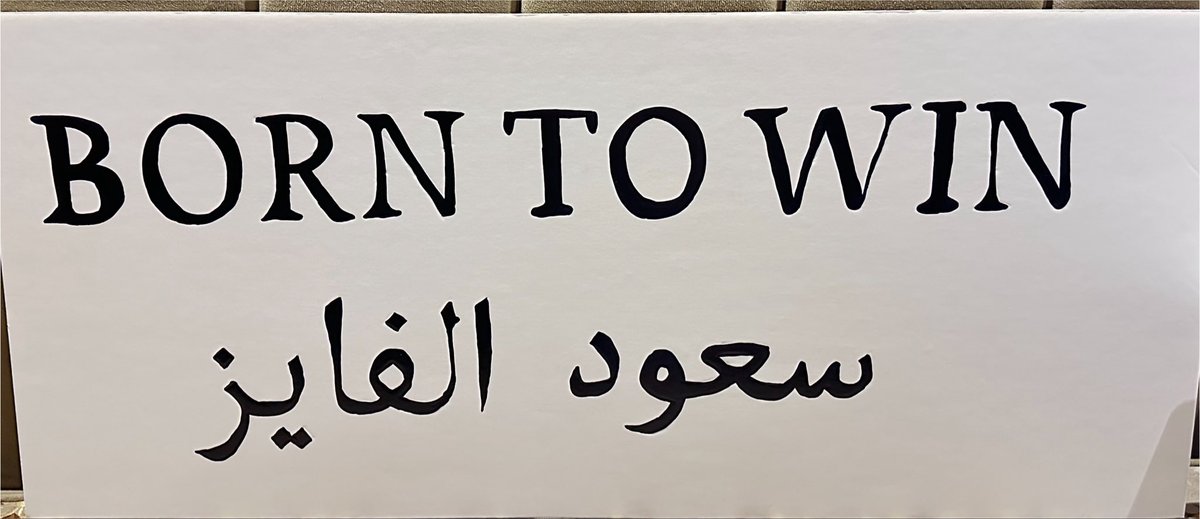 BORN TO WIN
سعود الفايز